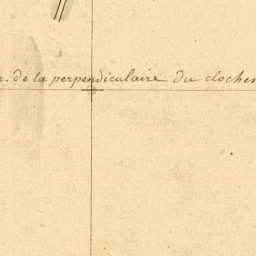 de la perpendiculaire du clocher